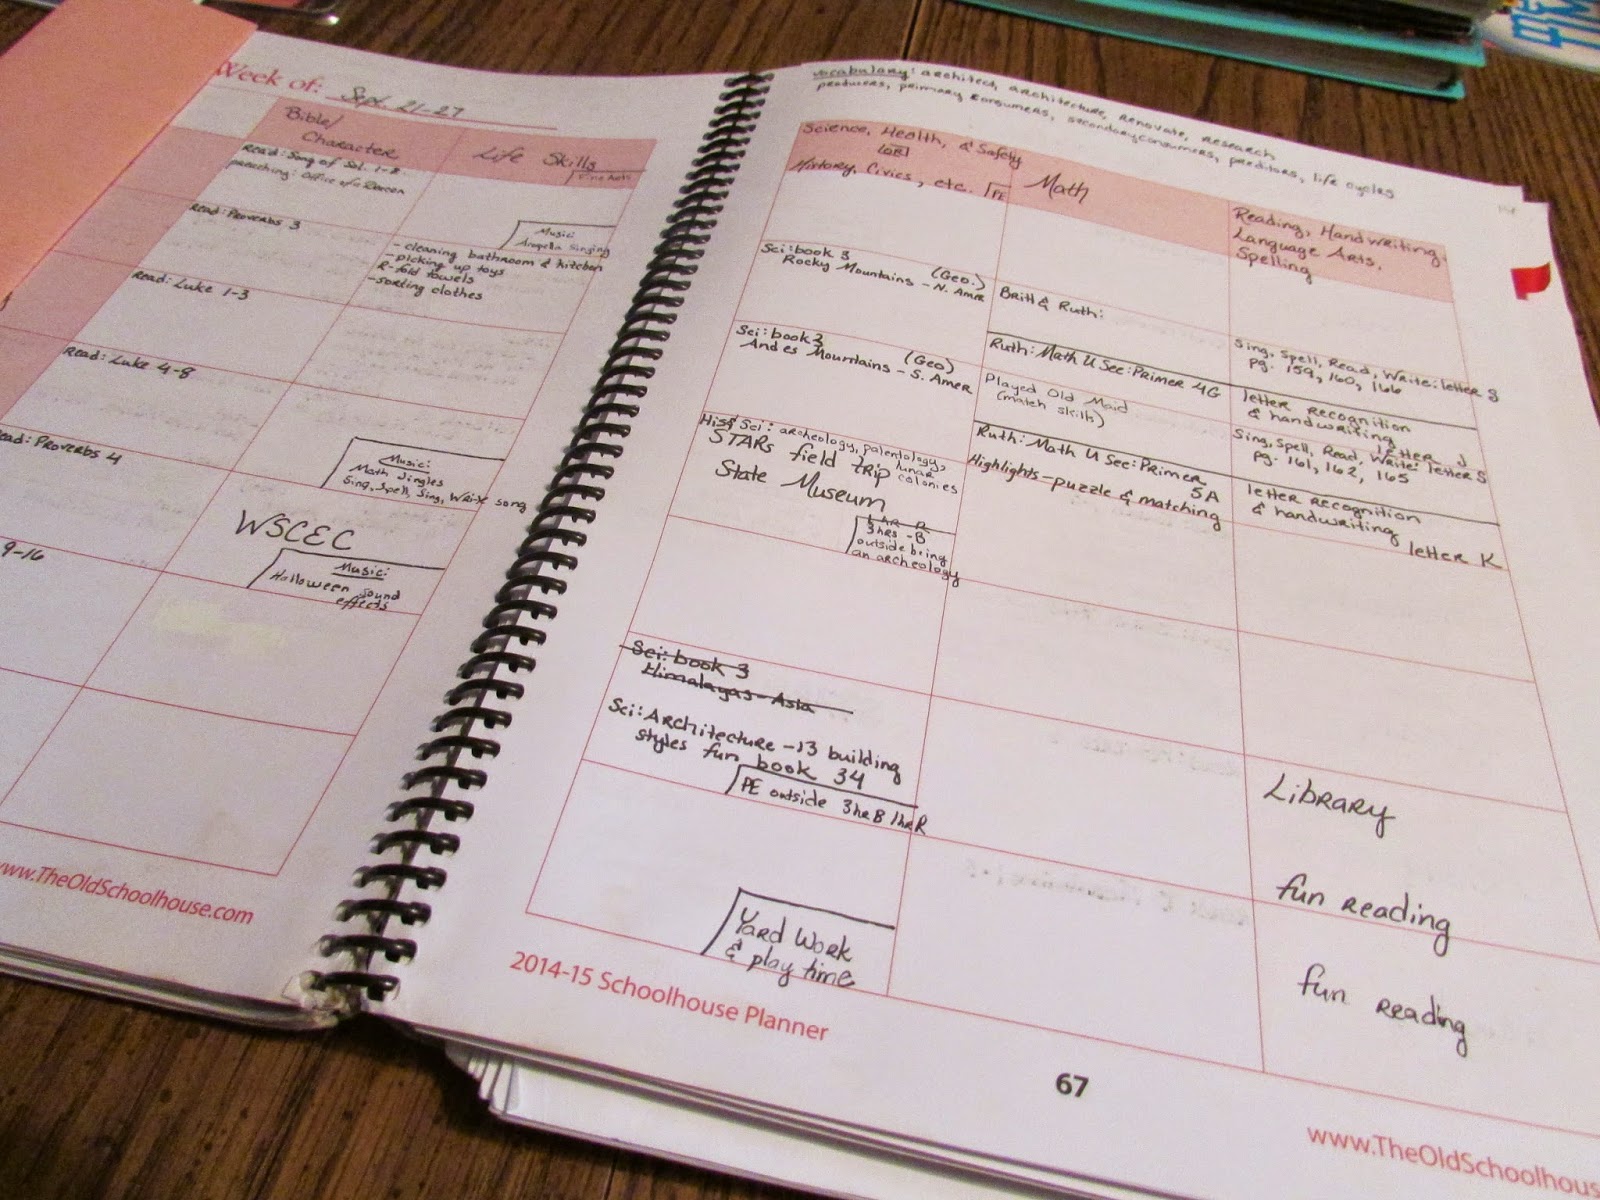 Week of: Sept. 21-27
Bible/
Character
Life Skills
Fine Arts
Read: Song of Sol. 1-8
preaching: Office of a Deacon
Music:
Acapella Singing
Read: Proverbs 3
- cleaning bathroom & kitchen
- picking up toys
R-fold towels
-sorting clothes
Read: Luke 1-3
Read: Luke 4-8
Music:
Math Jingles
Sing, Spell, Sing, Write song
Read: Proverbs 4
WSCEC
Music:
Halloween sound
effects
9-16
www.TheOldSchoolhouse.com
vocabulary: architech architecture, renovate, research
producers, primary consumers, secondary consumers, preditors, life cycles
Science, Health, & Safety
(OR)
History, Civics, etc. PE
Math
Reading, Handwriting,
Language Arts,
Spelling
Sci: book 3 (Geo.)
Rocky Mountains - N. Amer
Britt & Ruth:
Ruth: Math U See: Primer 4G
Sing, Spell, Read, Write: letter S
pg. 159, 160, 166
Sci: book 3 (Geo)
Andes Mountains - S. Amer
Played Old Maid
(match skills)
letter recognition
& handwriting
letter J
Hist/Sci: archeology, palentology,
lunar
colonies
STARs field trip
State Museum
3hrs -B
outside being
an archeology
Ruth: Math U See: Primer
5A
Highlights - puzzle & matching
Sing, Spell, Read, Write: letter S
pg. 161, 162, 165
letter recognition
& handwriting
letter K
Sci: book 3
Himalayas - Asia
Sci: Architecture - 13 building
styles fun book 34
PE outside 3hr B 1hr R
Library
fun reading
Yard Work
& play time
fun reading
2014-15 Schoolhouse Planner
67
www.TheOldSchoolhous